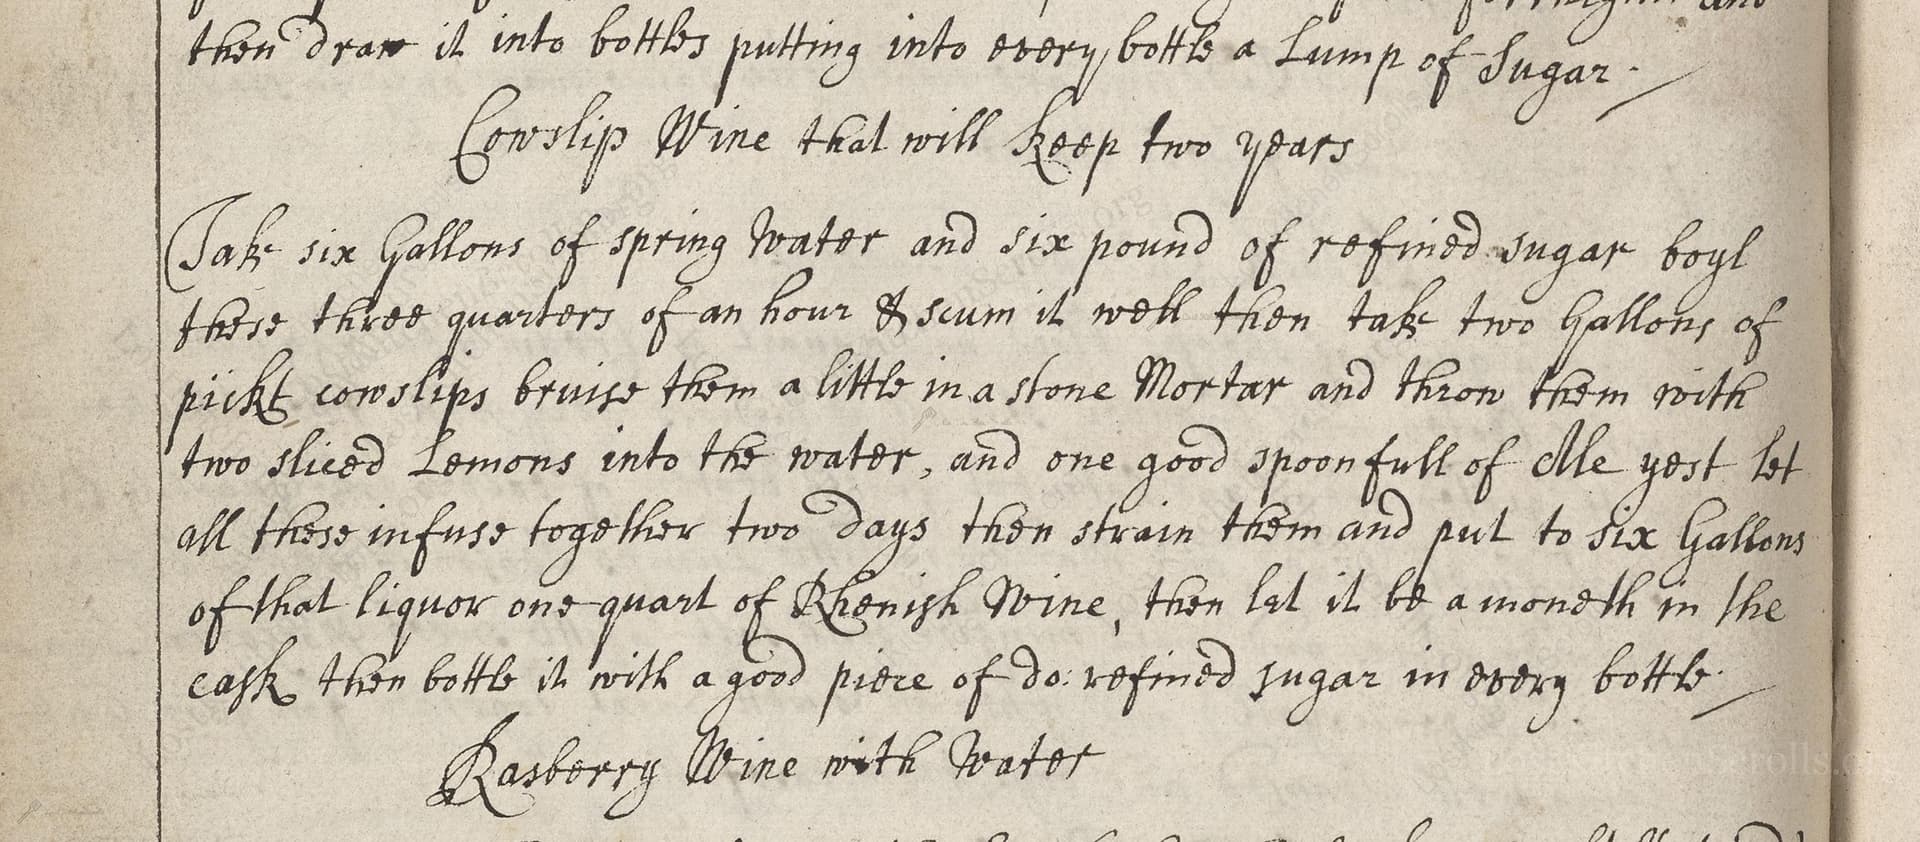 and
then draw it into bottles putting into every bottle a Lump of Sugar.
Cowslip Wine that will keep two years
Take six Gallons of spring Water and six pound of refined sugar boyl
these three quarters of an hour & scum it well then take two Gallons of
pickt cowslips bruise them a little in a stone Mortar and throw them with
two sliced Lemons into the water, and one good spoonfull of Ale yest let
all these infuse together two days then strain them and put to six Gallons
of that liquor one quart of Rhenish Wine, then let it be a moneth in the
cask then bottle it with a good piece of do: refined sugar in every bottle.
Rasberry Wine with Water